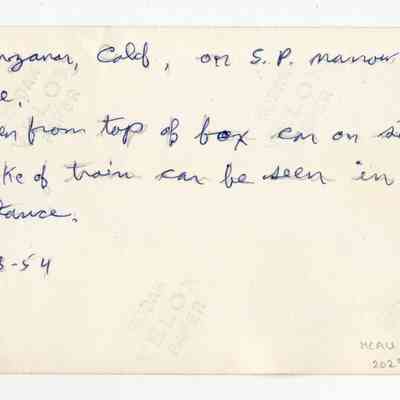 nzanar, Calif, on S.P. narrow
e.
en from top of box car on si
ke of train can be seen in
tance.
8-54
KODAK
VELOX
PAPER
MCAU
202